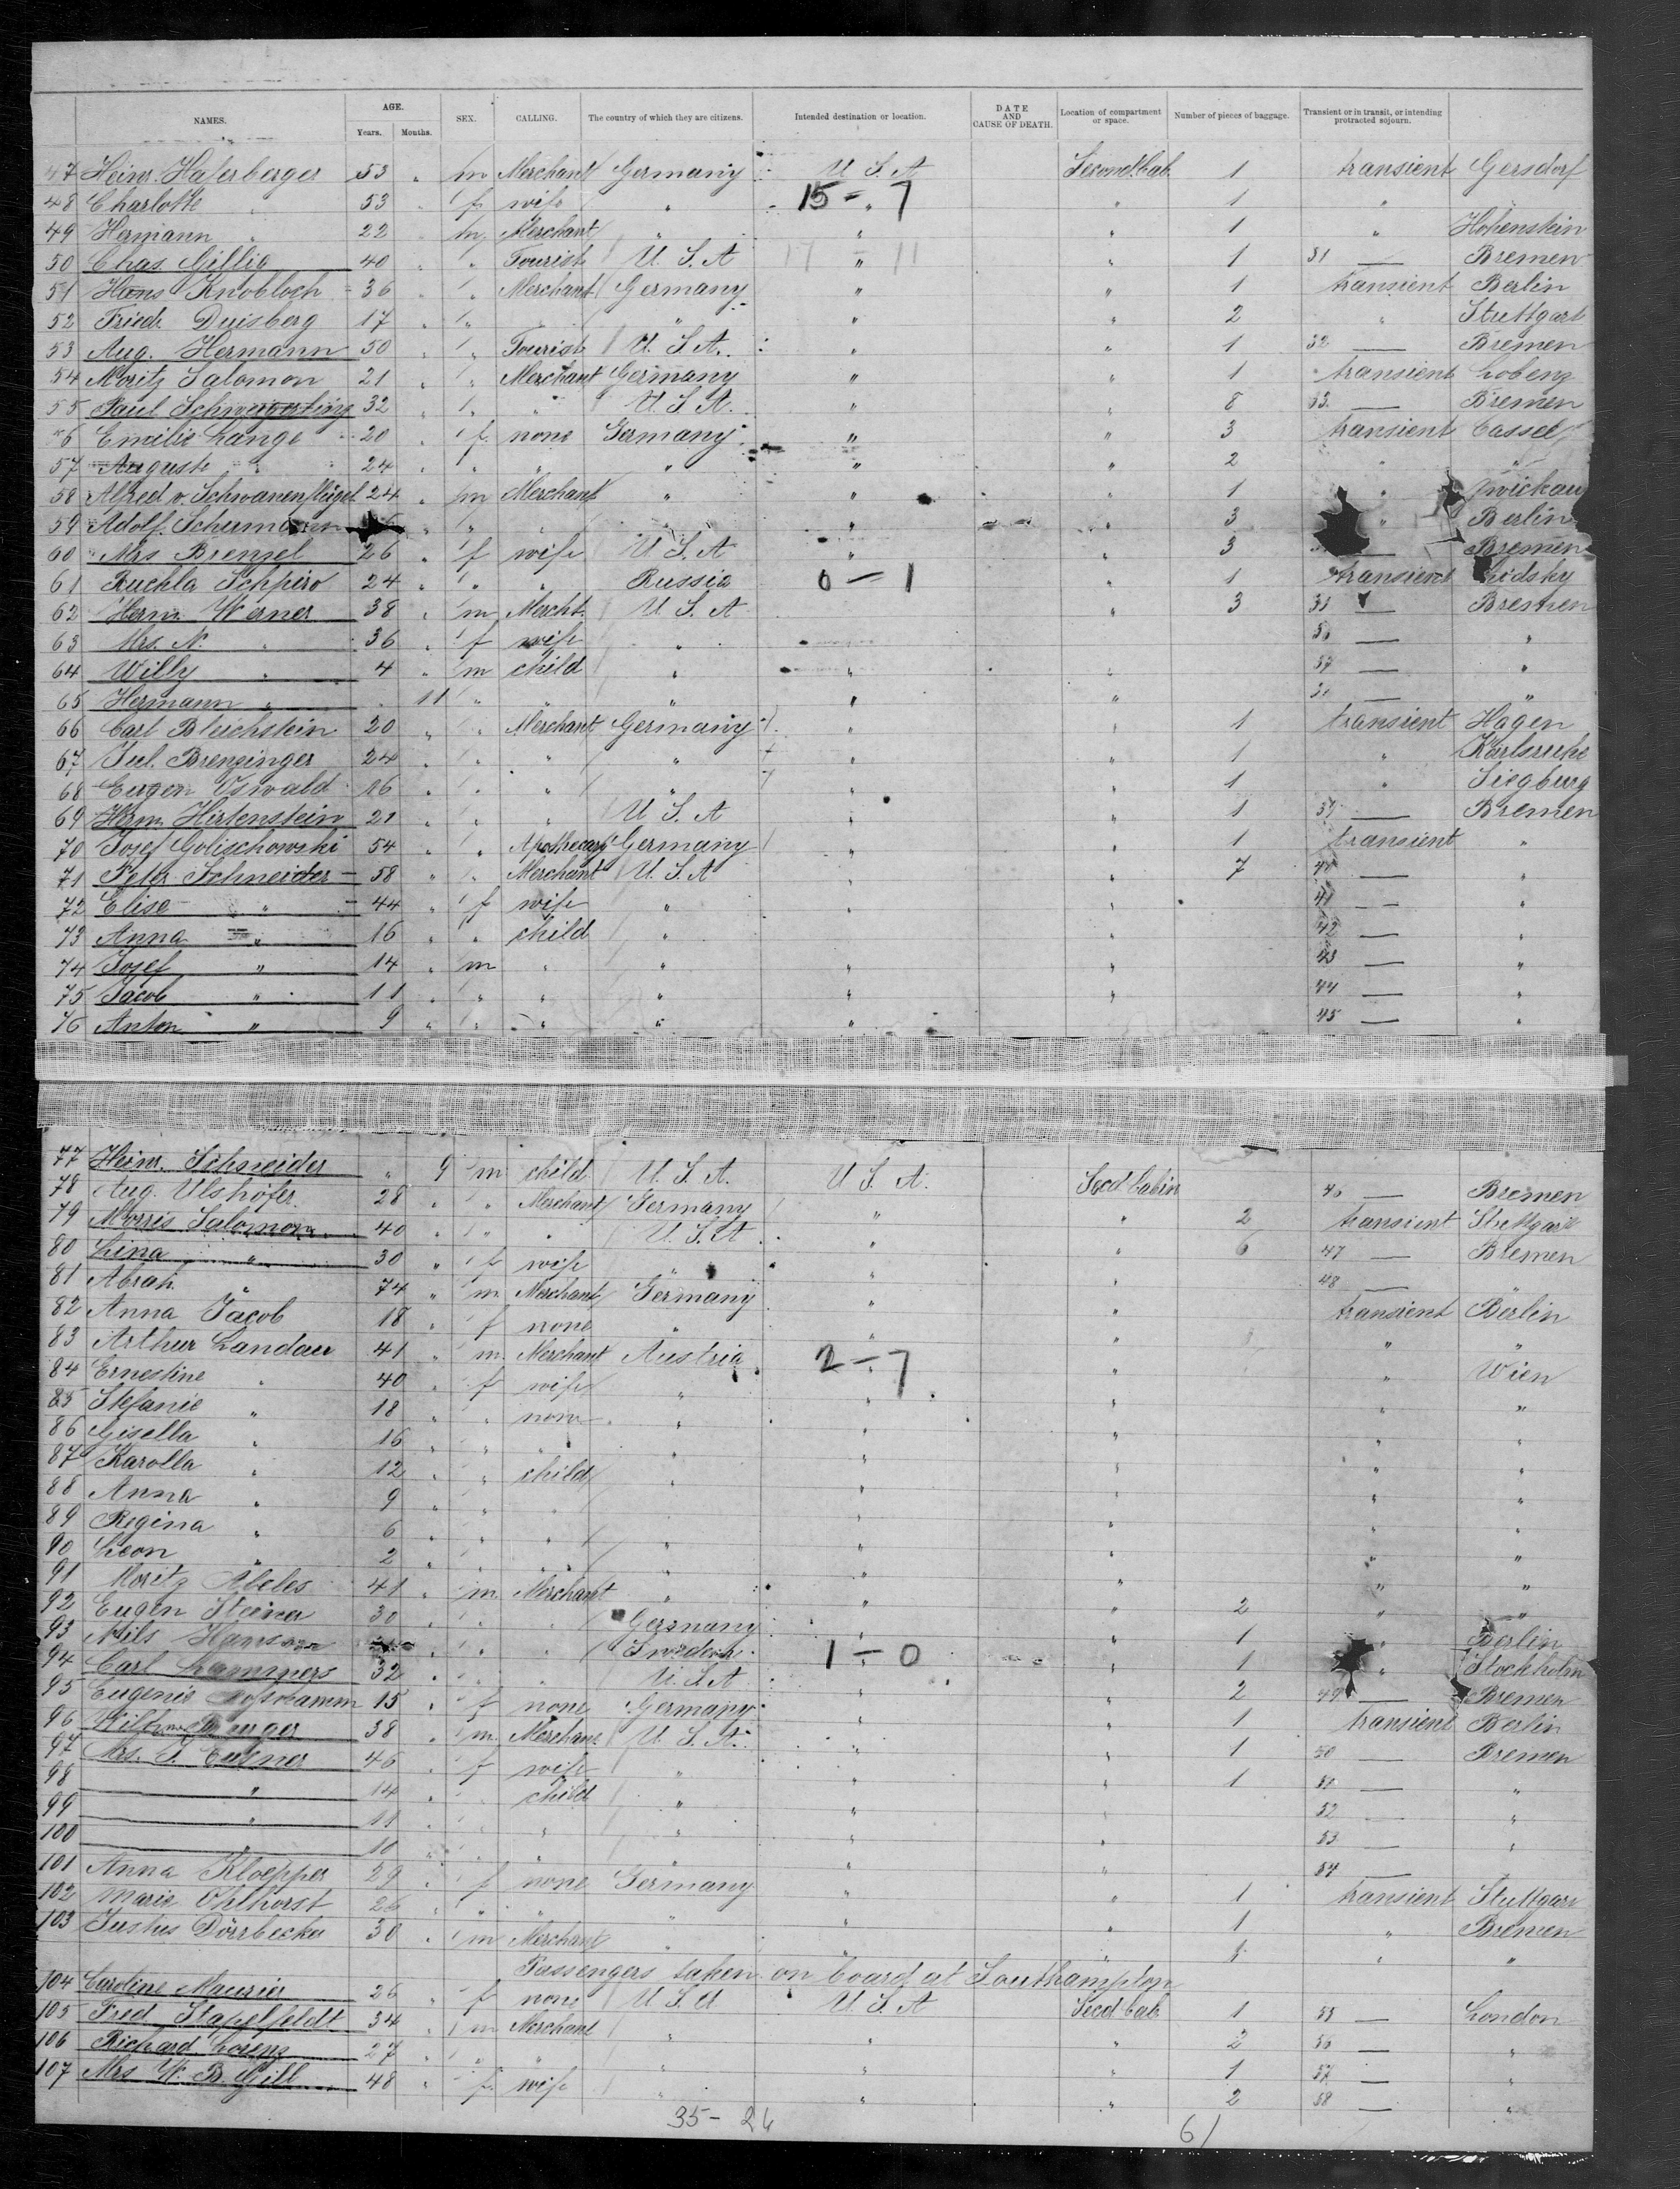 NAMES. AGE. Years. Months. SEX. CALLING. The country of which they are citizens. Intended destination or location. DATE AND CAUSE OF DEATH. Location of compartment or space. Number of pieces of baggage. Transient or in transit, or intending protracted sojourn.
47 Heinr. Haferberger 53 " m Merchant Germany U. S. A Second Cab. 1 transient Gersdorf
48 Charlotte " 53 " f wife " 15 - 7 " 1 " "
49 Hermann " 22 " m. Merchant " " " 1 " Hohenstein
50 Chas. Gillig 40 " " Tourist U. S. A 17 " 11 " 1 31 — Bremen
51 Hans Knobloch 36 " " Merchant Germany " " 1 transient Berlin
52 Friedr. Duisberg 17 " " " " " " 2 " Stuttgart
53 Aug. Hermann 50 " " Tourist U. S. A. " " 1 32 — Bremen
54 Moritz Salomon 21 " " Merchant Germany " " 1 transient
55 Paul 32 " " " U. S. A. " " 8 33 — Bremen
56 Emilie Lange 20 " f. none Germany " " 3 transient Cassel
57 Auguste " 24 " " " " " " 2 " "
58 Alfred v. Schwanenflügel 24 " m Merchant " " " 1 " Zwickau
59 Adolf. " " " " " " 3 " Berlin
60 Mrs Brenzel 26 " f wife U. S. A " " 3 — Bremen
61 Ruchla Schpiro 24 " " " Russia 0 - 1 " 1 transient Lidsky
62 Herm. Werner 38 " m Mercht. U. S. A " 3 35 — Bremen
63 Mrs. N. " 36 " f wife " " 36 — "
64 Willy " 4 " m child " " " 37 — "
65 Hermann " " 11 " " " " " 38 — "
66 Carl Bleichstein 20 " " Merchant Germany " " 1 transient Hagen
67 Jul. Brenzinger 24 " " " " " " 1 " Karlsruhe
68 Eugen Oswald 16 " " " " " " 1 " Siegburg
69 Herm. Hirtenstein 21 " " " U. S. A " " 1 39 — Bremen
70 Josef Golischowski 54 " " Apothecary Germany " " 1 transient "
71 Peter Schneider 58 " " Merchant U. S. A " " 7 40 — "
72 Elise " 44 " f wife " " " 41 — "
73 Anna " 16 " " child " " 42 — "
74 Josef " 14 " m " " " " 43 — "
75 Jacob " 11 " " " " " " 44 — "
76 Anton " 9 " " " " " 45 — "
77 Heinr. Schneider " 9 m child U. S. A. U. S. A. Secd Cabin 46 — Bremen
78 Aug. Ulshöfer 28 " " Merchant Germany " " 2 transient Stuttgart
79 Morris Salomon 40 " " " U. S. A " " 6 47 — Bremen
80 Lina " 30 " f wife " " " 48 — "
81 Abrah. " 74 " m Merchant Germany " " transient Berlin
82 Anna Jacob 18 " f none " " " " "
83 Arthur Landau 41 " m. Merchant Austria 2 - 7 " " Wien
84 Ernestine " 40 " f wife " " " " "
85 Stefanie " 18 " " none " " " " "
86 Gisella " 16 " " " " " " " "
87 Karolla " 12 " " child " " " " "
88 Anna " 9 " " " " " " "
89 Regina " 6 " " " " " " " "
90 Leon " 2 " " " " " " " "
91 Moritz Abeles 41 " m Merchant " " " 2 " "
92 Eugen 30 " " " Germany " " 1 " Berlin
93 Nils " " " Sweden 1 - 0 " 1 " Stockholm
94 Carl Lammers 32 " " " U. S. A " " 2 49 — Bremen
95 Eugenie 15 " f none Germany " " 1 transient Berlin
96 38 " m Merchant U. S. A. " " 1 50 — Bremen
97 Mrs. 46 " f wife " " " 1 51 — "
98 " 14 " child " " 52 — "
99 " 11 " " " " " 53 — "
100 " 10 " " " " " 54 —
101 Anna Kloepper 29 " f none Germany " " 1 transient Stuttgart
102 Marie Ohlhorst 26 " " " " " " 1 " Bremen
103 Justus Dörrbecker 30 " m Merchant " " " 1 " "
Passengers taken on board at Southampton
104 Caroline Maurier 26 " f none U. S. A U. S. A Secd Cab 1 55 — London
105 Fred Stapelfeldt 34 " m Merchant " " " 2 56 — "
106 Richard Lorenz 27 " " " " " " 1 57 — "
107 Mrs W. B. Gill 48 " f. wife " " " 2 58 — "
35 - 26 61